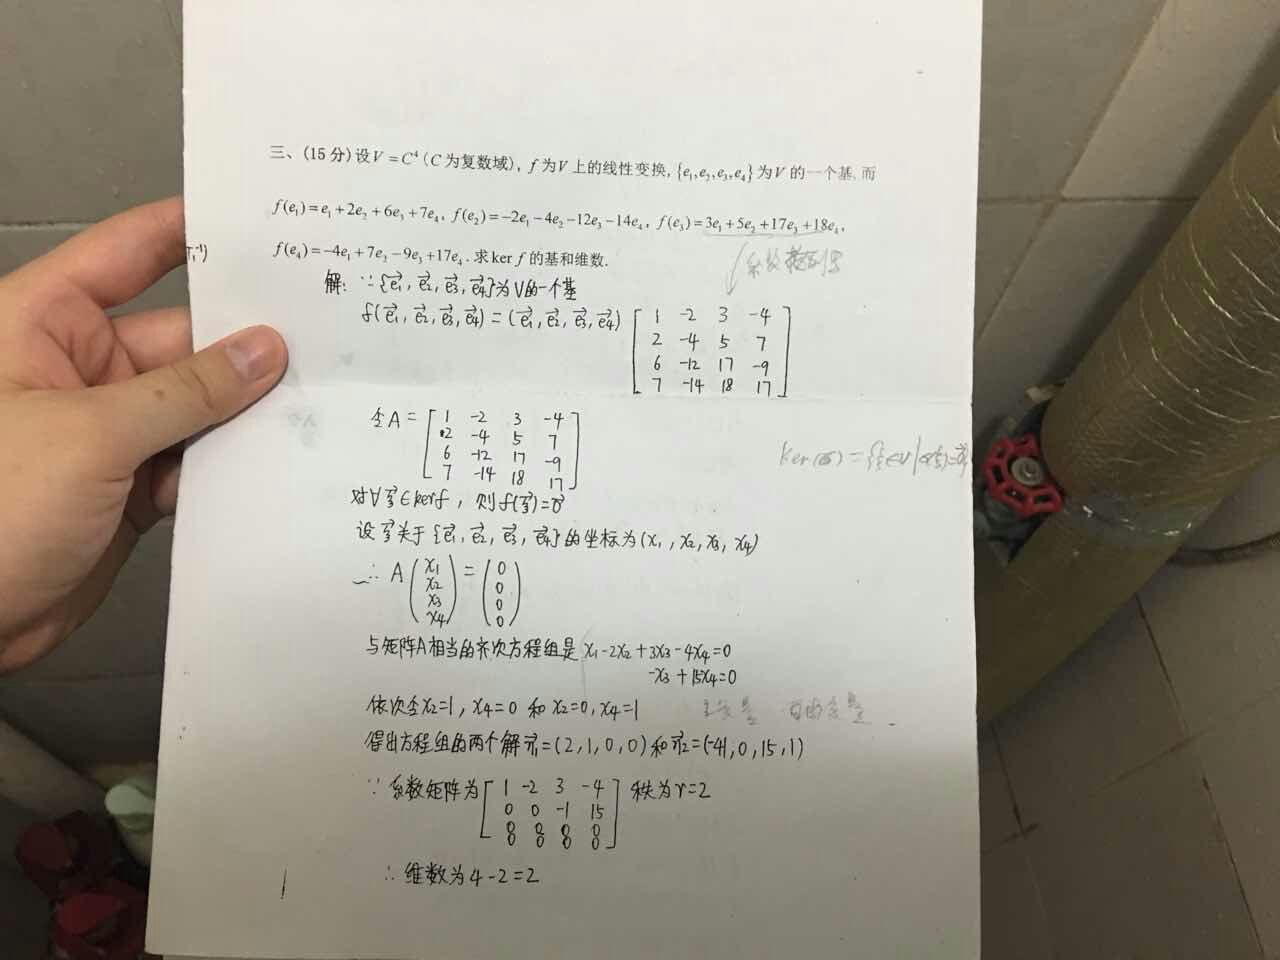 三、(15 分) 设 V = C⁴ ( C 为复数域), f 为 V 上的线性变换, {e₁,e₂,e₃,e₄} 为 V 的一个基, 而
f(e₁)=e₁+2e₂+6e₃+7e₄, f(e₂)=-2e₁-4e₂-12e₃-14e₄, f(e₃)=3e₁+5e₂+17e₃+18e₄,
f(e₄)=-4e₁+7e₂-9e₃+17e₄. 求 ker f 的基和维数.
解: ∵{e₁⃗, e₂⃗, e₃⃗, e₄⃗}为V的一个基
f(e₁⃗, e₂⃗, e₃⃗, e₄⃗) = (e₁⃗, e₂⃗, e₃⃗, e₄⃗)
1 -2 3 -4
2 -4 5 7
6 -12 17 -9
7 -14 18 17
令A =
1 -2 3 -4
2 -4 5 7
6 -12 17 -9
7 -14 18 17
对∀ξ⃗∈kerf, 则f(ξ⃗)=0⃗
设ξ⃗关于{e₁⃗, e₂⃗, e₃⃗, e₄⃗}的坐标为(x₁, x₂, x₃, x₄)
∴ A (x₁ x₂ x₃ x₄) = (0 0 0 0)
与矩阵A相当的齐次方程组是 x₁-2x₂+3x₃-4x₄=0
-x₃+15x₄=0
依次令x₂=1, x₄=0 和 x₂=0, x₄=1
得出方程组的两个解η₁⃗=(2,1,0,0)和η₂⃗=(-41,0,15,1)
∵系数矩阵为
1 -2 3 -4
0 0 -1 15
0 0 0 0
0 0 0 0
秩为r=2
∴维数为4-2=2